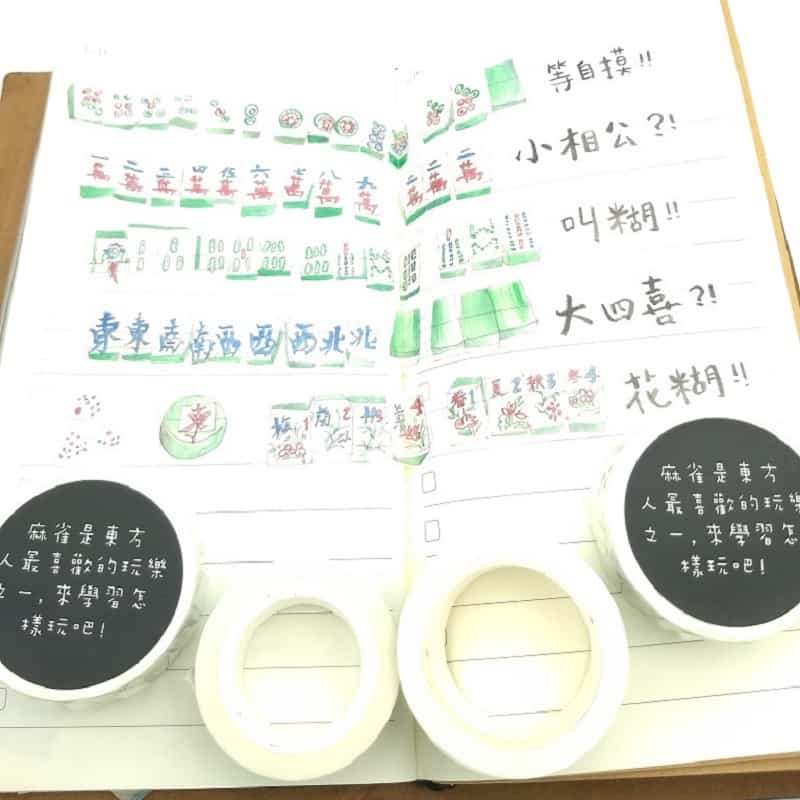 等自摸!!
一萬 二萬 三萬 四萬 伍萬 六萬 七萬 八萬 九萬 二萬 二萬 二萬 小相公?!
叫糊!!
東 東 南 南 西 西 西 北 北 大四喜?!
東 梅1 蘭2 4 春1 夏2 秋3 冬4 花糊!!
麻雀是東方
人最喜歡的玩樂
之一,來學習怎
樣玩吧!
麻雀是東方
人最喜歡的玩樂
之一,來學習怎
樣玩吧!